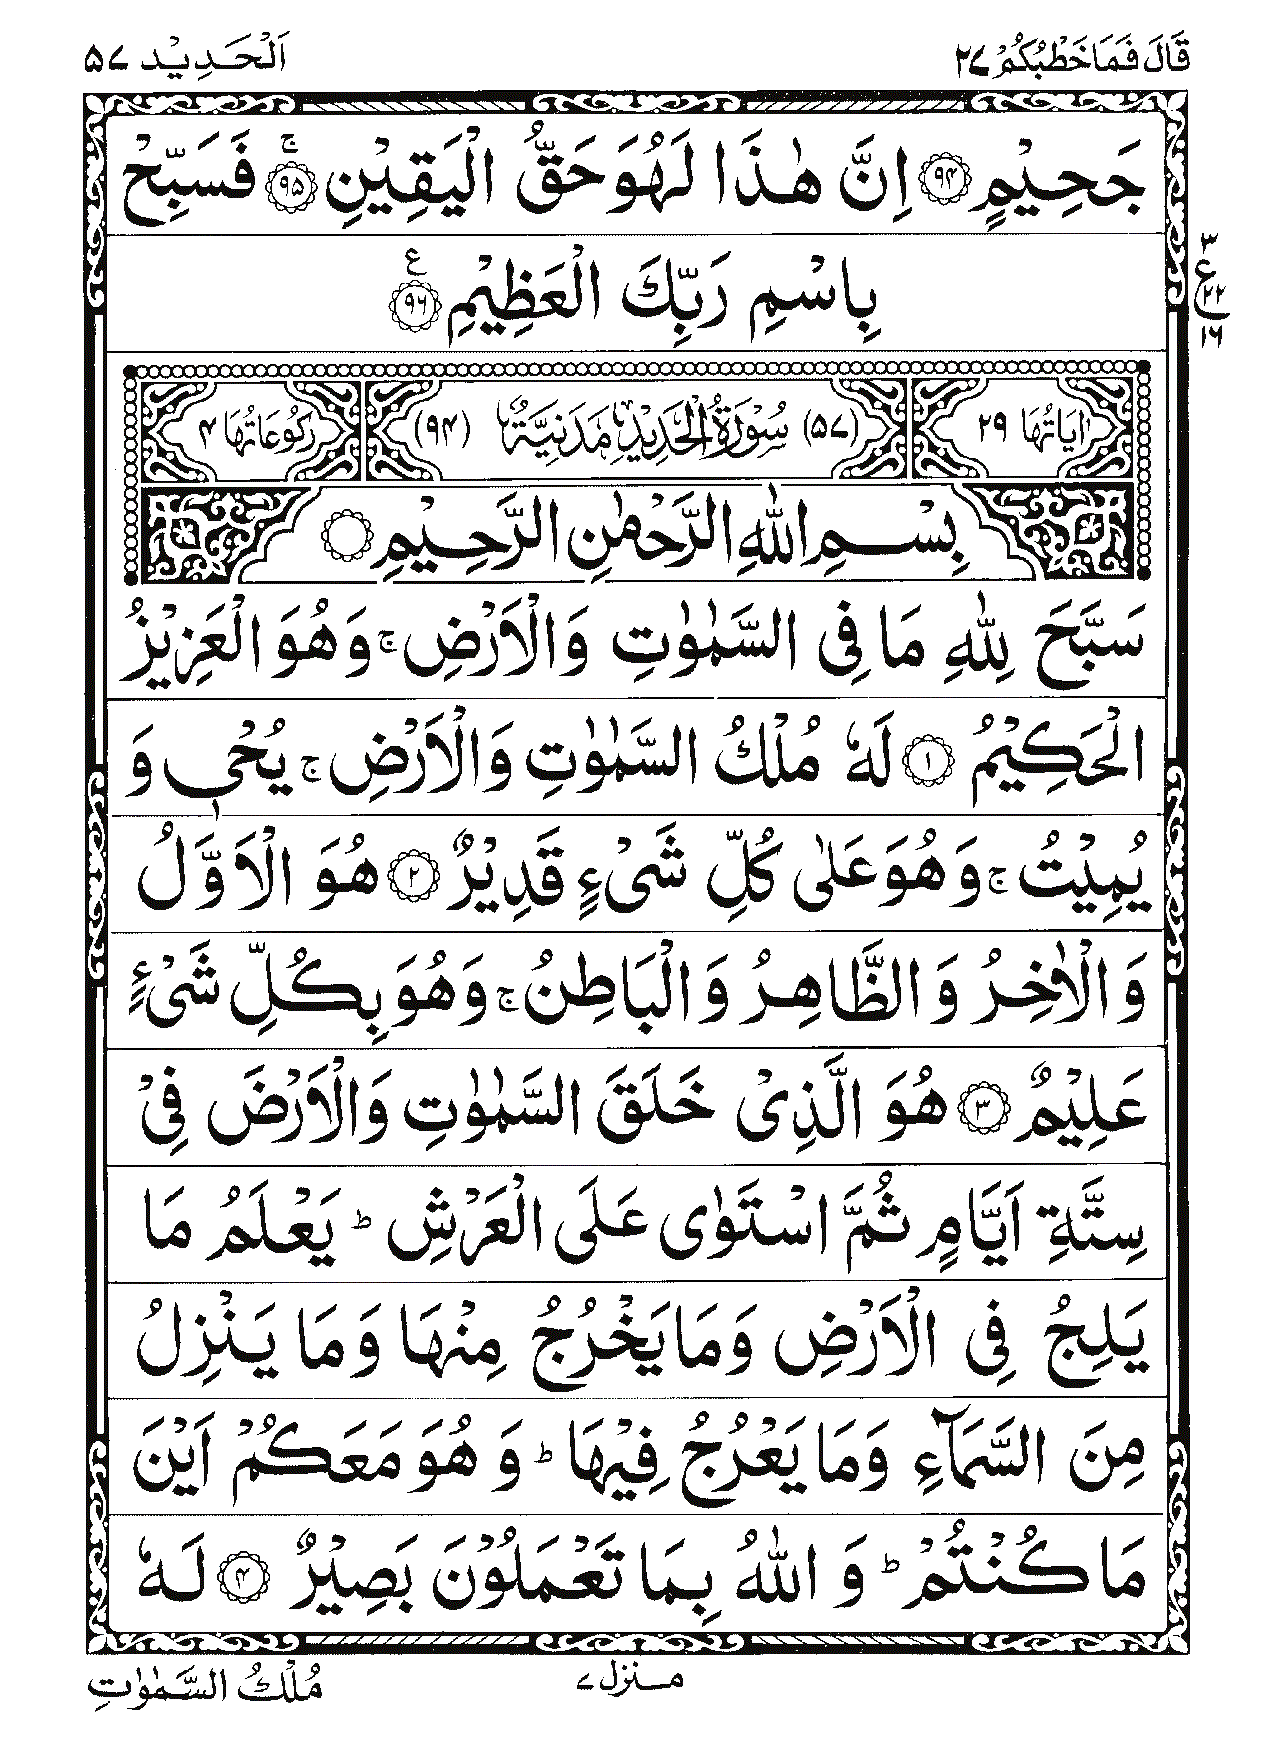 قَالَ فَمَا خَطْبُكُمْ ٢٧ اَلْحَدِيْد ٥٧
جَحِيْمٍ ﴿٩٤﴾ اِنَّ هٰذَا لَهُوَ حَقُّ الْيَقِيْنِ ﴿٩٥﴾ۚ فَسَبِّحْ
بِاسْمِ رَبِّكَ الْعَظِيْمِ ﴿٩٦﴾ ع
٣
ع ٢٢
١٦
اٰيَاتُهَا ٢٩ (٥٧) سُوْرَةُ الْحَدِيْدِ مَدَنِيَّةٌ (٩٤) رُكُوْعَاتُهَا ٤
بِسْمِ اللّٰهِ الرَّحْمٰنِ الرَّحِيْمِ
سَبَّحَ لِلّٰهِ مَا فِى السَّمٰوٰتِ وَالْاَرْضِ ۚ وَهُوَ الْعَزِيْزُ
الْحَكِيْمُ ﴿١﴾ لَهٗ مُلْكُ السَّمٰوٰتِ وَالْاَرْضِ ۚ يُحْىٖ وَ
يُمِيْتُ ۚ وَهُوَ عَلٰى كُلِّ شَىْءٍ قَدِيْرٌ ﴿٢﴾ هُوَ الْاَوَّلُ
وَالْاٰخِرُ وَالظَّاهِرُ وَالْبَاطِنُ ۚ وَهُوَ بِكُلِّ شَىْءٍ
عَلِيْمٌ ﴿٣﴾ هُوَ الَّذِىْ خَلَقَ السَّمٰوٰتِ وَالْاَرْضَ فِىْ
سِتَّةِ اَيَّامٍ ثُمَّ اسْتَوٰى عَلَى الْعَرْشِ ؕ يَعْلَمُ مَا
يَلِجُ فِى الْاَرْضِ وَمَا يَخْرُجُ مِنْهَا وَمَا يَنْزِلُ
مِنَ السَّمَآءِ وَمَا يَعْرُجُ فِيْهَا ؕ وَهُوَ مَعَكُمْ اَيْنَ
مَا كُنْتُمْ ؕ وَاللّٰهُ بِمَا تَعْمَلُوْنَ بَصِيْرٌ ﴿٤﴾ لَهٗ
منزل ٧
مُلْكُ السَّمٰوٰتِ